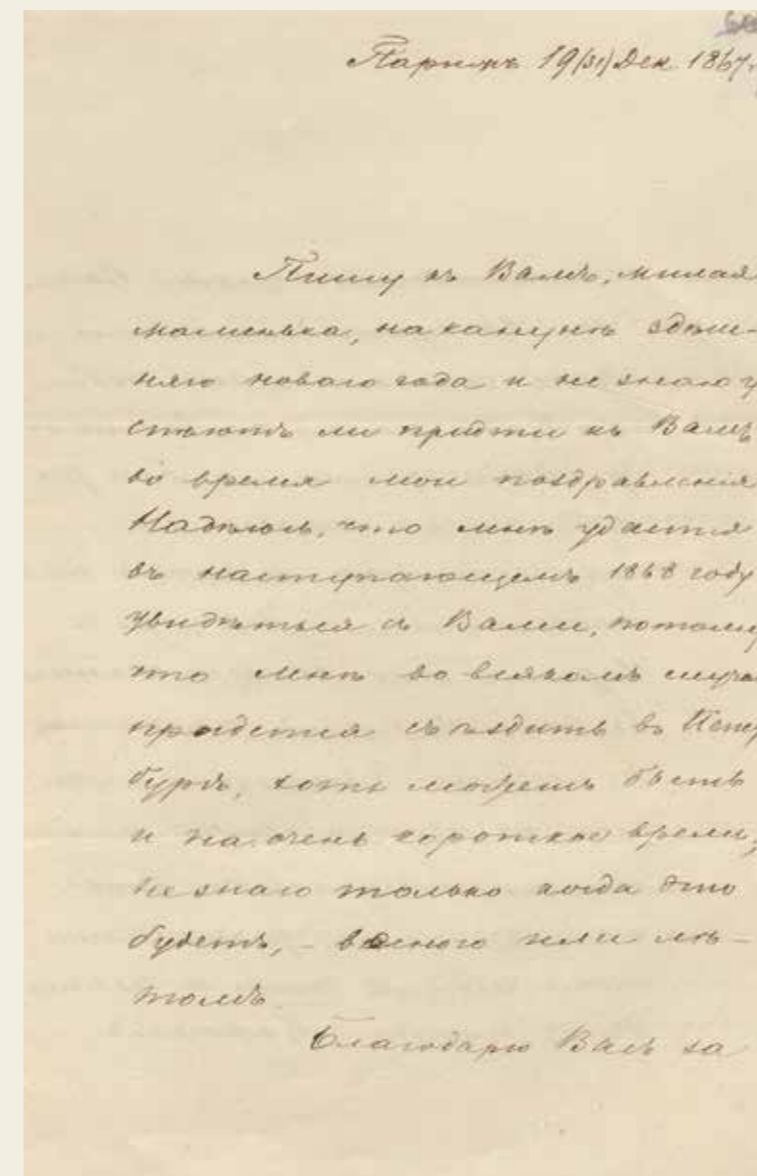 Парижъ 19/(31) Дек 1867.
Пишу къ Вамъ, милая
маменька, наканунѣ здѣш-
няго новаго года и не знаю у
спѣютъ ли придти къ Вамъ
во время мои поздравленія
Надѣюсь, что мнѣ удастся
въ наступающемъ 1868 году
увидѣться съ Вами, потому
что мнѣ во всякомъ случа
придется съѣздить въ Петер
бургъ, хоть можетъ быть
и на очень короткое время,
не знаю только когда это
будетъ, – весною или лѣ-
томъ.
Благодарю Васъ за